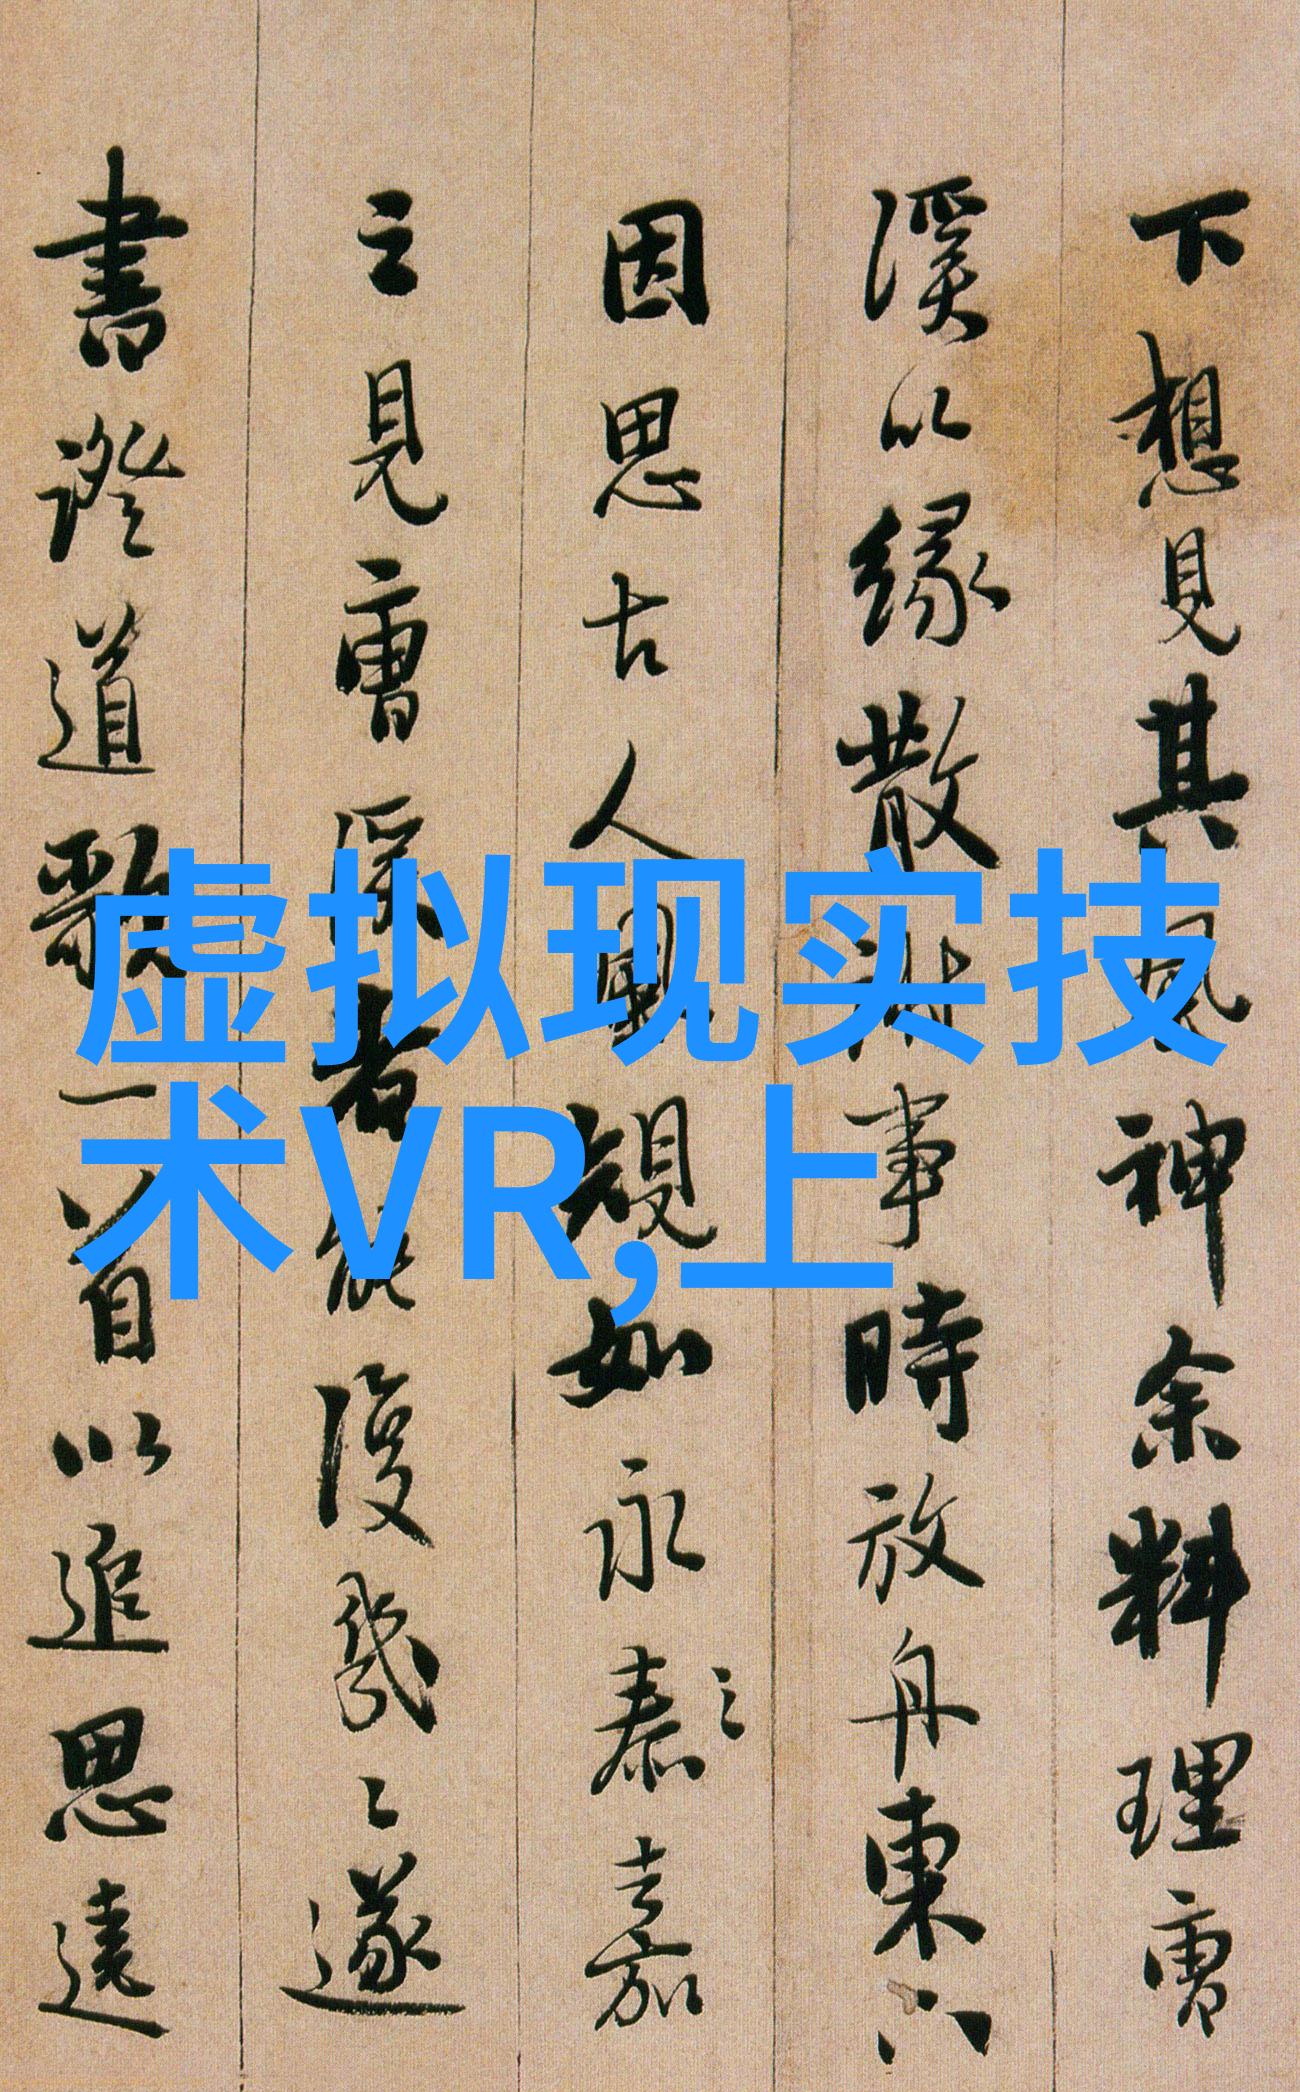 下想見其風神余料理曹
溪以緣散事時放舟東
因思古人規如永泰之嘉
之見曹溪者能復幾〻遂
書證道歌一首以追思遠
虚拟现实技
术VR,上